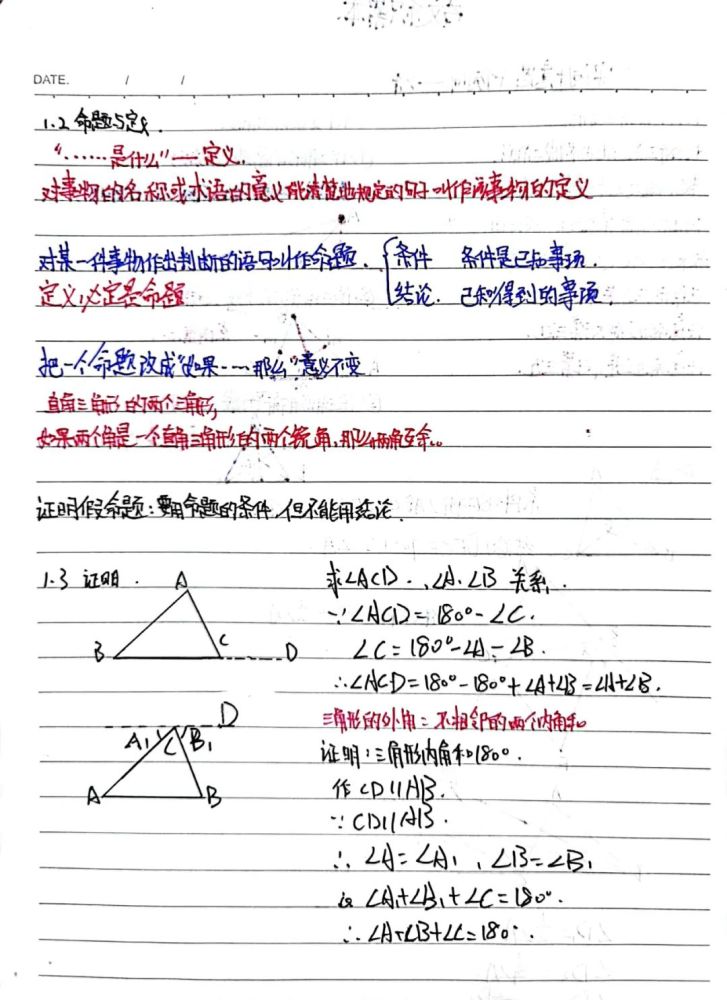 DATE. / /
1.2 命题与定义.
"……是什么"——定义.
对事物的名称或术语的意义能清楚地规定的句子叫作该事物的定义
对某一件事物作出判断的语句叫作命题. { 条件 条件是已知事项.
定义必定是命题 结论. 已知得到的事项.
把一个命题改成"如果……那么"意义不变
直角三角形的两个三角形,
如果两个角是一个直角三角形的两个锐角,那么两角互余.
证明假命题:要用命题的条件,但不能用结论.
1.3 证明.
A
B C D
求∠ACD.、∠A.∠B 关系.
∵∠ACD=180°-∠C.
∠C=180°-∠A-∠B.
∴∠ACD=180°-180°+∠A+∠B=∠A+∠B.
三角形的外角=不相邻的两个内角和
D
A₁ C B₁
A B
证明:三角形内角和180°.
作CD∥AB.
∵CD∥AB.
∴∠A=∠A₁,∠B=∠B₁
∠A₁+∠B₁+∠C=180°.
∴∠A+∠B+∠C=180°.